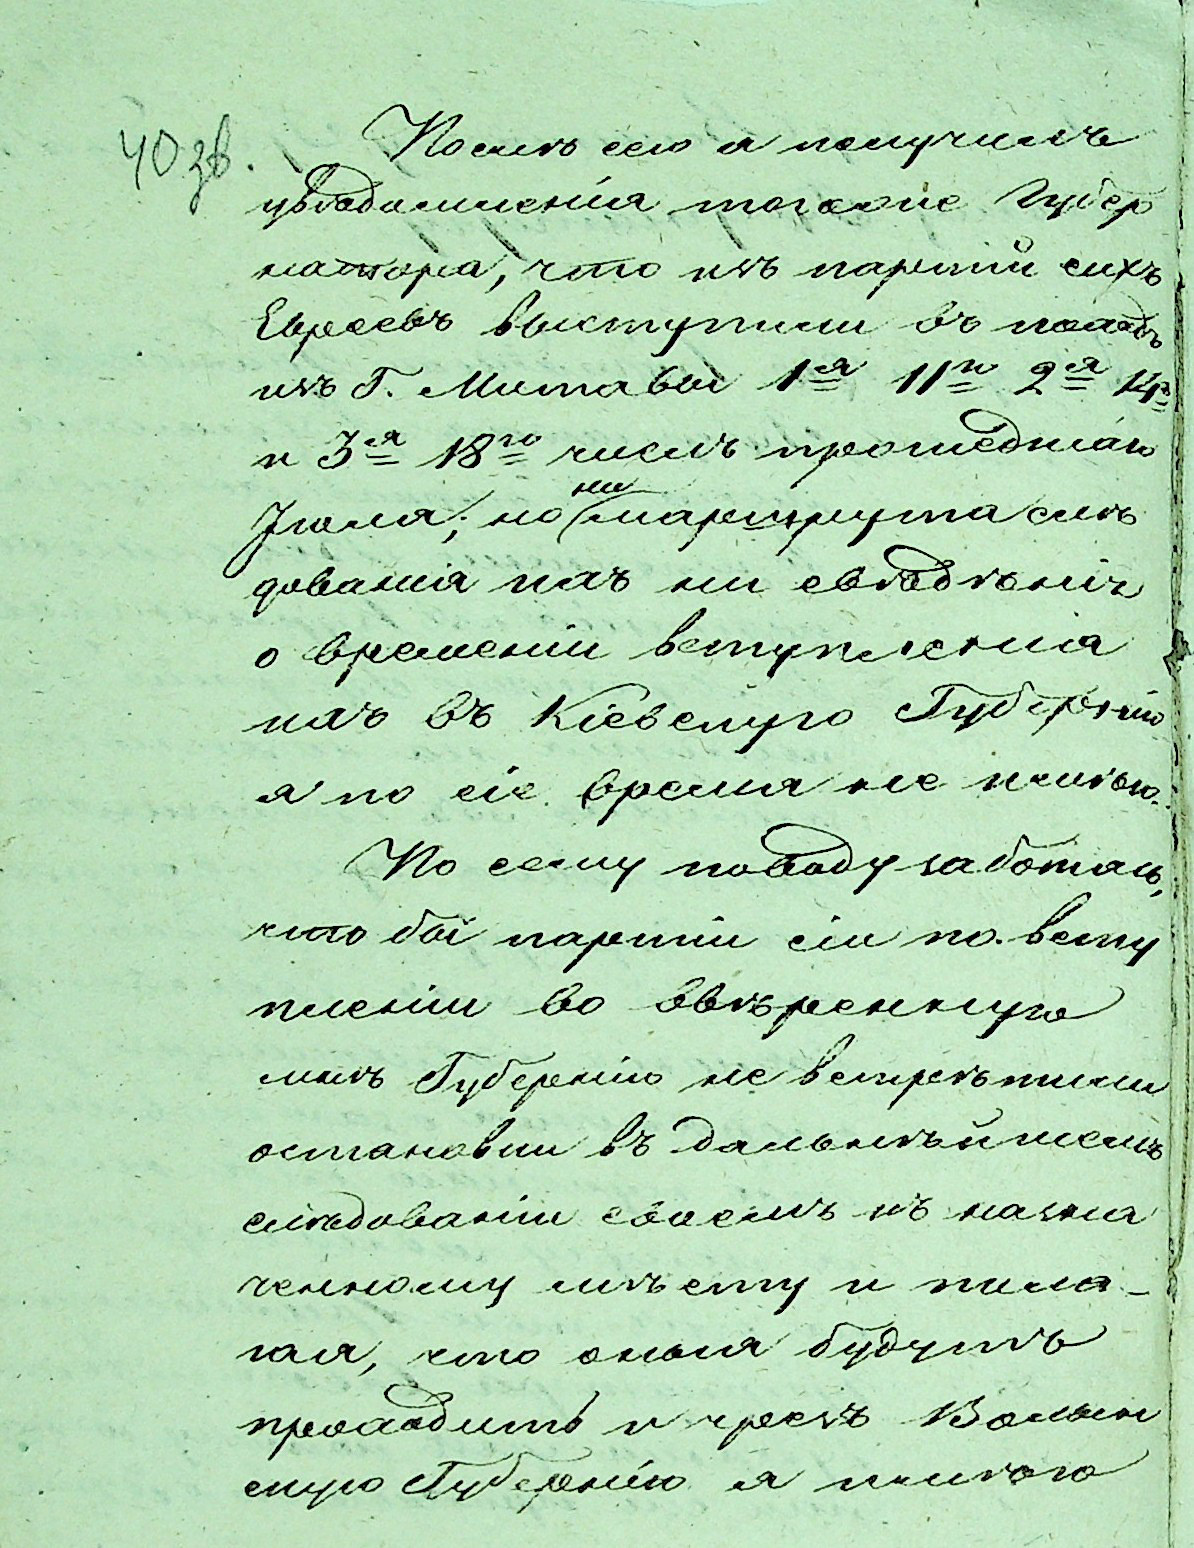 40 зв.
Послѣ сего я получилъ
увѣдомленія тогоже Губер
натора, что изъ партій сихъ
Евреевъ выступили въ походъ
изъ Г. Митавы 1я 11го 2я 14го
и 3я 18го числъ прошедшаго
Іюля; но ни маршрута слѣ
дованія ихъ ни свѣдѣнія
о времени вступленія
ихъ въ Кіевскую Губернію
я по сіе время не имѣю.
По сему поводу заботясь,
что бы партіи сіи по всту
пленіи во ввѣренную
мнѣ Губернію не встрѣтили
остановки въ дальнѣйшемъ
слѣдованіи своемъ къ назна
ченному мѣсту и пола-
гая, что оныя будутъ
проходить и чрезъ Волын
скую Губернію я имѣю